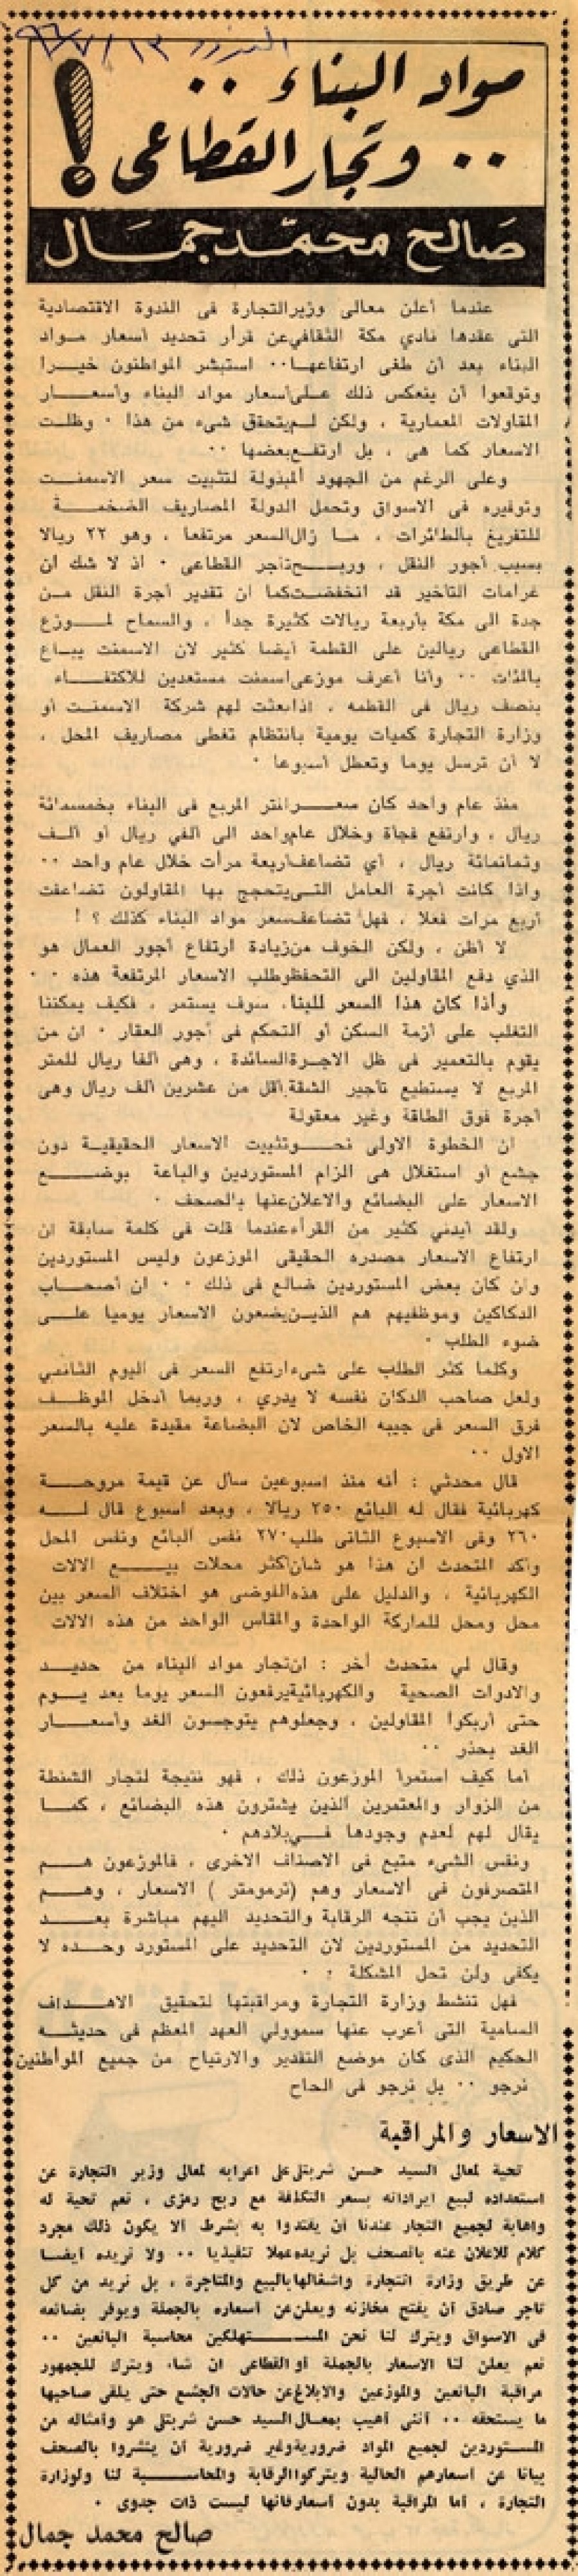 ٩٦/٧/١٣
مواد البناء ..
.. وتجار القطاعى !
صالح محمد جمال
عندما أعلن معالى وزير التجارة فى الندوة الاقتصادية
التى عقدها نادي مكة الثقافي عن قرار تحديد أسعار مواد
البناء بعد أن طغى ارتفاعها .. استبشر المواطنون خيرا
وتوقعوا أن ينعكس ذلك على أسعار مواد البناء وأسعار
المقاولات المعمارية ، ولكن لم يتحقق شىء من هذا . وظلت
الاسعار كما هى ، بل ارتفع بعضها ..
وعلى الرغم من الجهود المبذولة لتثبيت سعر الاسمنت
وتوفيره فى الاسواق وتحمل الدولة المصاريف الضخمة
للتفريغ بالطائرات ، ما زال السعر مرتفعا ، وهو ٢٢ ريالا
بسبب أجور النقل ، وربح تاجر القطاعى . اذ لا شك ان
غرامات التأخير قد انخفضت كما ان تقدير أجرة النقل من
جدة الى مكة بأربعة ريالات كثيرة جدا ، والسماح لموزع
القطاعى ريالين على القطمة أيضا كثير لان الاسمنت يباع
بالمئات .. وأنا أعرف موزعى اسمنت مستعدين للاكتفاء
بنصف ريال فى القطمه ، اذا بعثت لهم شركة الاسمنت أو
وزارة التجارة كميات يومية بانتظام تغطى مصاريف المحل ،
لا أن ترسل يوما وتعطل أسبوعا .
منذ عام واحد كان سعر المتر المربع فى البناء بخمسمائة
ريال ، وارتفع فجأة وخلال عام واحد الى ألفي ريال أو ألف
وثمانمائة ريال ، أي تضاعف أربعة مرات خلال عام واحد ..
واذا كانت أجرة العامل التى يتحجج بها المقاولون تضاعفت
أربع مرات فعلا ، فهل تضاعف سعر مواد البناء كذلك ؟ !
لا أظن ، ولكن الخوف من زيادة ارتفاع أجور العمال هو
الذي دفع المقاولين الى التحفظ وطلب الاسعار المرتفعة هذه . .
وأذا كان هذا السعر للبناء سوف يستمر ، فكيف يمكننا
التغلب على أزمة السكن أو التحكم فى أجور العقار . ان من
يقوم بالتعمير فى ظل الاجرة السائدة ، وهى ألفا ريال للمتر
المربع لا يستطيع تأجير الشقة بأقل من عشرين ألف ريال وهى
أجرة فوق الطاقة وغير معقولة
ان الخطوة الاولى نحو تثبيت الاسعار الحقيقية دون
جشع أو استغلال هى الزام المستوردين والباعة بوضع
الاسعار على البضائع والاعلان عنها بالصحف .
ولقد أيدنى كثير من القراء عندما قلت فى كلمة سابقة ان
ارتفاع الاسعار مصدره الحقيقى الموزعون وليس المستوردين
وان كان بعض المستوردين ضالع فى ذلك . . ان أصحاب
الدكاكين وموظفيهم هم الذين يضعون الاسعار يوميا على
ضوء الطلب .
وكلما كثر الطلب على شىء ارتفع السعر فى اليوم الثانى
ولعل صاحب الدكان نفسه لا يدري ، وربما أدخل الموظف
فرق السعر فى جيبه الخاص لان البضاعة مقيدة عليه بالسعر
الاول ..
قال محدثي : أنه منذ اسبوعين سأل عن قيمة مروحة
كهربائية فقال له البائع ٢٥٠ ريالا ، وبعد اسبوع قال له
٢٦٠ وفى الاسبوع الثانى طلب ٢٧٠ نفس البائع ونفس المحل
وأكد المتحدث ان هذا هو شأن أكثر محلات بيع الالات
الكهربائية ، والدليل على هذه الفوضى هو اختلاف السعر بين
محل ومحل للماركة الواحدة والمقاس الواحد من هذه الالات
وقال لي متحدث أخر : ان تجار مواد البناء من حديد
والادوات الصحية والكهربائية يرفعون السعر يوما بعد يوم
حتى أربكوا المقاولين ، وجعلوهم يتوجسون الغد وأسعار
الغد بحذر ..
أما كيف استمرأ الموزعون ذلك ، فهو نتيجة لتجار الشنطة
من الزوار والمعتمرين الذين يشترون هذه البضائع ، كما
يقال لهم لعدم وجودها فى بلادهم .
ونفس الشىء متبع فى الاصناف الاخرى ، فالموزعون هم
المتصرفون فى الاسعار وهم (ترمومتر ) الاسعار ، وهم
الذين يجب أن تتجه الرقابة والتحديد اليهم مباشرة بعد
التحديد من المستوردين لان التحديد على المستورد وحده لا
يكفى ولن تحل المشكلة . .
فهل تنشط وزارة التجارة ومراقبتها لتحقيق الاهداف
السامية التى أعرب عنها سمو ولي العهد المعظم فى حديثه
الحكيم الذى كان موضع التقدير والارتياح من جميع المواطنين
نرجو .. بل نرجو فى الحاح
الاسعار والمراقبة
تحية لمعالى السيد حسن شربتلى على اعرابه لمعالى وزير التجارة عن
استعداده لبيع ايراداته بسعر التكلفة مع ربح رمزى ، نعم تحية له
واهابة لجميع التجار عندنا أن يقتدوا به بشرط ألا يكون ذلك مجرد
كلام للاعلان عنه بالصحف بل نريده عملا تنفيذيا .. ولا نريده أيضا
عن طريق وزارة التجارة واشغالها بالبيع والمتاجرة ، بل نريد من كل
تاجر صادق أن يفتح مخازنه ويعلن عن أسعاره بالجملة ويوفر بضائعه
فى الاسواق ويترك لنا نحن المستهلكين محاسبة البائعين ..
نعم يعلن لنا الاسعار بالجملة أو القطاعى ان شاء ويترك للجمهور
مراقبة البائعين والموزعين والابلاغ عن حالات الجشع حتى يلقى صاحبها
ما يستحقه .. أننى أهيب بمعالى السيد حسن شربتلى هو وأمثاله من
المستوردين لجميع المواد ضرورية وغير ضرورية أن ينشروا بالصحف
بيانا عن أسعارهم الحالية ويتركوا الرقابة والمحاسبة لنا ولوزارة
التجارة ، أما المراقبة بدون أسعار فانها ليست ذات جدوى .
صالح محمد جمال